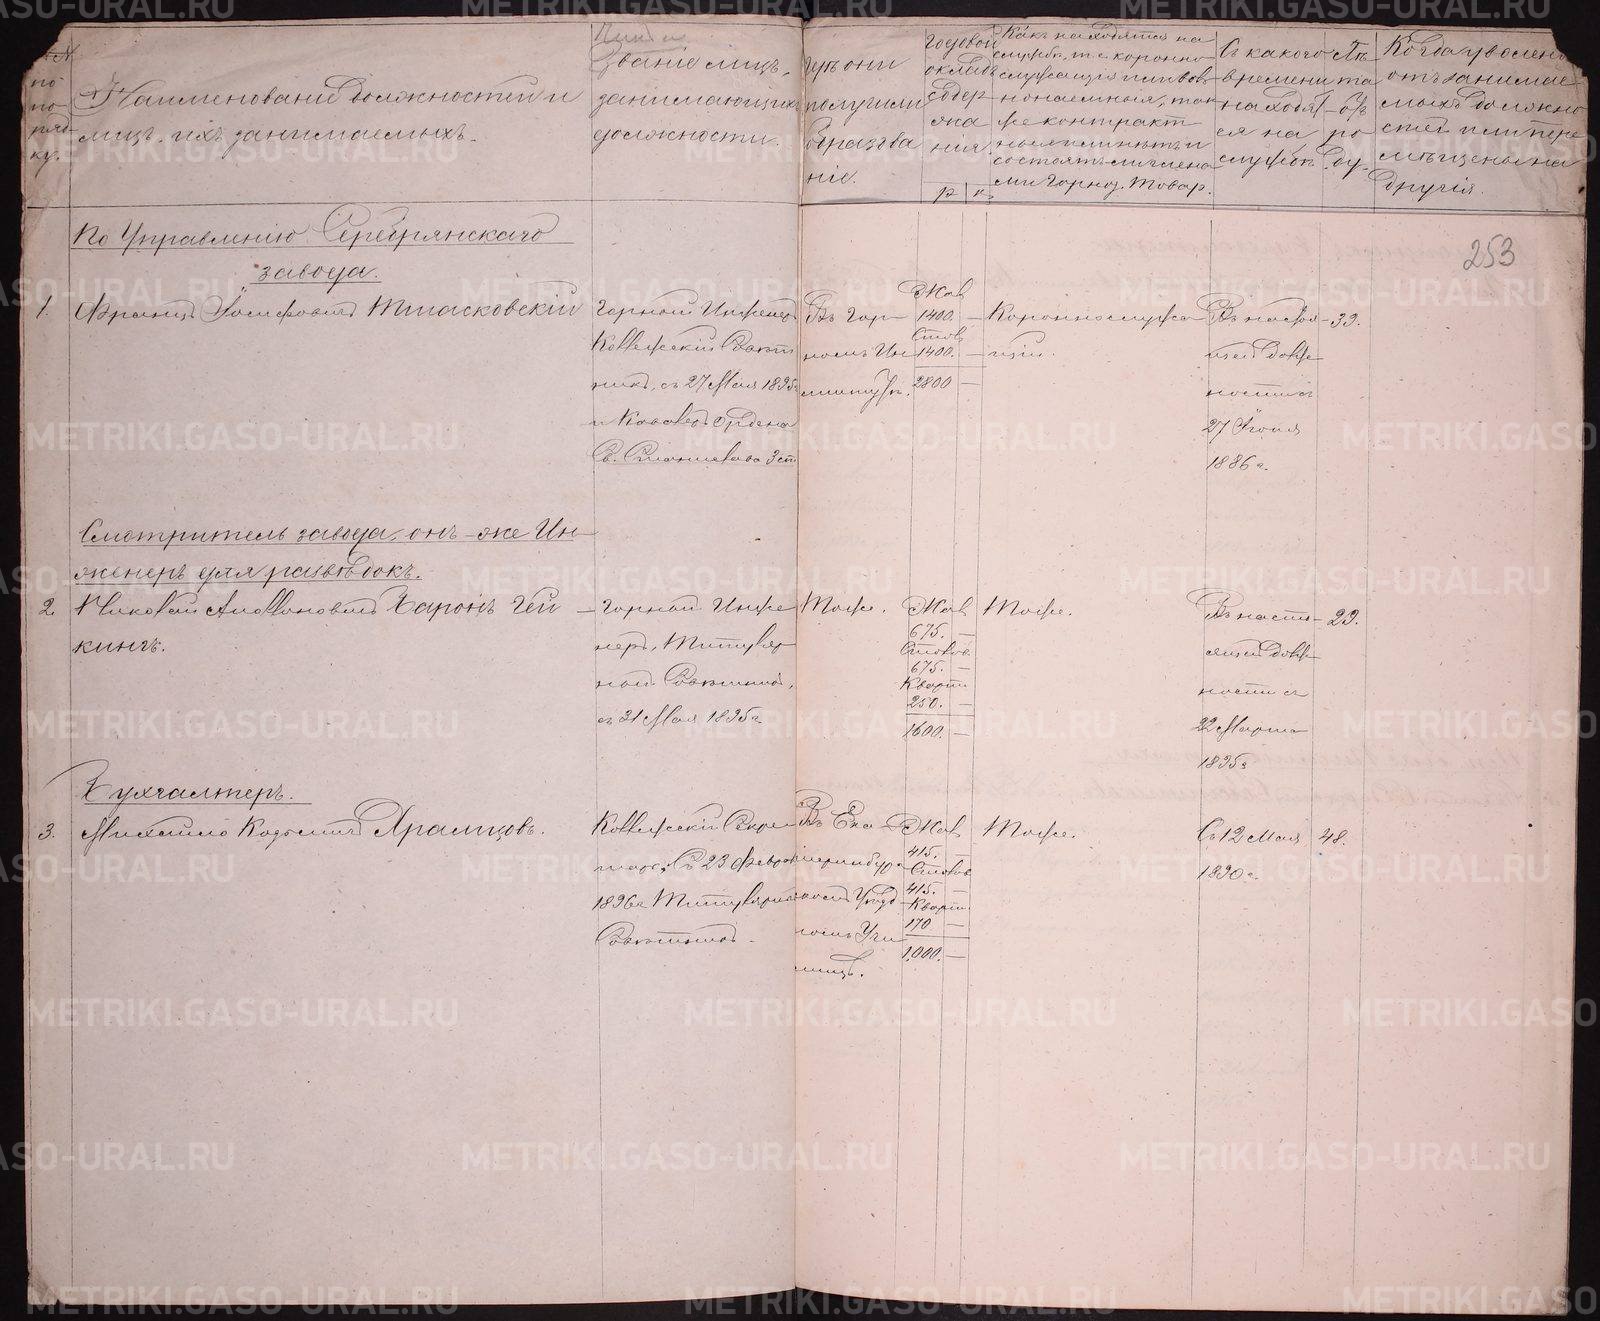 № по порядку.
Наименованіе должностей и
лицъ, ихъ занимаемыхъ.
Званіе лицъ,
занимающихъ
должности.
Гдѣ они
получили
образова
ніе.
Годовой
окладъ
содер
жа
нія.
р. к.
Какъ находятся на
службѣ, т. е. коронно-
служащія или воль
нонаемныя, так
же контракт
ныя или нѣтъ и
состоятъ ли члена
ми горноз. товар.
Съ какого
времени
находят
ся на
службѣ.
Лѣ
та
отъ
ро
ду.
Когда уволены
отъ занимае
мыхъ должно
стей или пере
мѣщены на
другія.
253
По Управленію Серебрянскаго
завода.
1. Францъ Іосифовичъ
Горный Инженеръ
Коллежскій Совѣт
никъ, съ 27 Мая 1895г
и Кавалеръ Ордена
Св. Станислава 3 ст
Въ Гор
номъ Ин
ститутѣ.
Жал
1400. —
Столов
1400. —
2800 —
Коронно служа
щій.
Въ настоя
щей долж
ности съ
27 Іюня
1886 г.
39.
Смотритель завода, онъ-же Ин-
женеръ для развѣдокъ.
2. Николай Аполлоновичъ Баронъ Гей
кингъ.
Горный Инже
неръ, Титуляр
ный Совѣтникъ,
съ 31 Мая 1895г
Тоже.
Жал
675. —
Столов.
675. —
Кварт.
250. —
1600. —
Тоже.
Въ насто
ящей долж
ности съ
22 Марта
1895г
29.
Бухгалтеръ.
3. Михаилъ Козьмичъ Храмцовъ.
Коллежскій Секре
тарь, съ 23 Февраля
1896г Титулярный
Совѣтникъ.
Въ Ека
теринбург
скомъ Уѣзд
номъ Учи
лищѣ.
Жал
415. —
Столов.
415. —
Кварт.
170 —
1,000. —
Тоже.
Съ 12 Мая
1890 г.
48.
METRIKI.GASO-URAL.RU